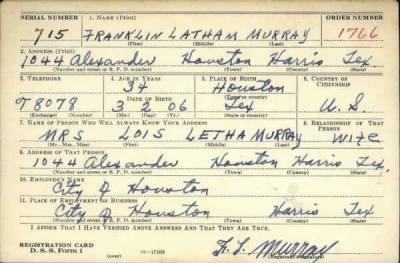 SERIAL NUMBER 1. NAME (Print) ORDER NUMBER
715 FRANKLIN LATHAM MURRAY 1766
(First) (Middle) (Last)
2. ADDRESS (Print)
1044 Alexander Houston Harris Tex.
(Number and street or R. F. D. number) (Town) (County) (State)
3. TELEPHONE 4. AGE IN YEARS 5. PLACE OF BIRTH 6. COUNTRY OF CITIZENSHIP
34 Houston
DATE OF BIRTH (Town or county)
T8078 3 2 06 Tex U. S.
(Exchange) (Number) (Mo.) (Day) (Yr.) (State or country)
7. NAME OF PERSON WHO WILL ALWAYS KNOW YOUR ADDRESS 8. RELATIONSHIP OF THAT PERSON
MRS LOIS LETHA MURRAY WIFE
(Mr., Mrs., Miss) (First) (Middle) (Last)
9. ADDRESS OF THAT PERSON
1044 Alexander Houston Harris Tex.
(Number and street or R. F. D. number) (Town) (County) (State)
10. EMPLOYER'S NAME
City of Houston
11. PLACE OF EMPLOYMENT OR BUSINESS
City of Houston Harris Tex
(Number and street or R. F. D. number) (Town) (County) (State)
I AFFIRM THAT I HAVE VERIFIED ABOVE ANSWERS AND THAT THEY ARE TRUE.
REGISTRATION CARD
D. S. S. Form 1 (over) 16—17105 F. L. Murray